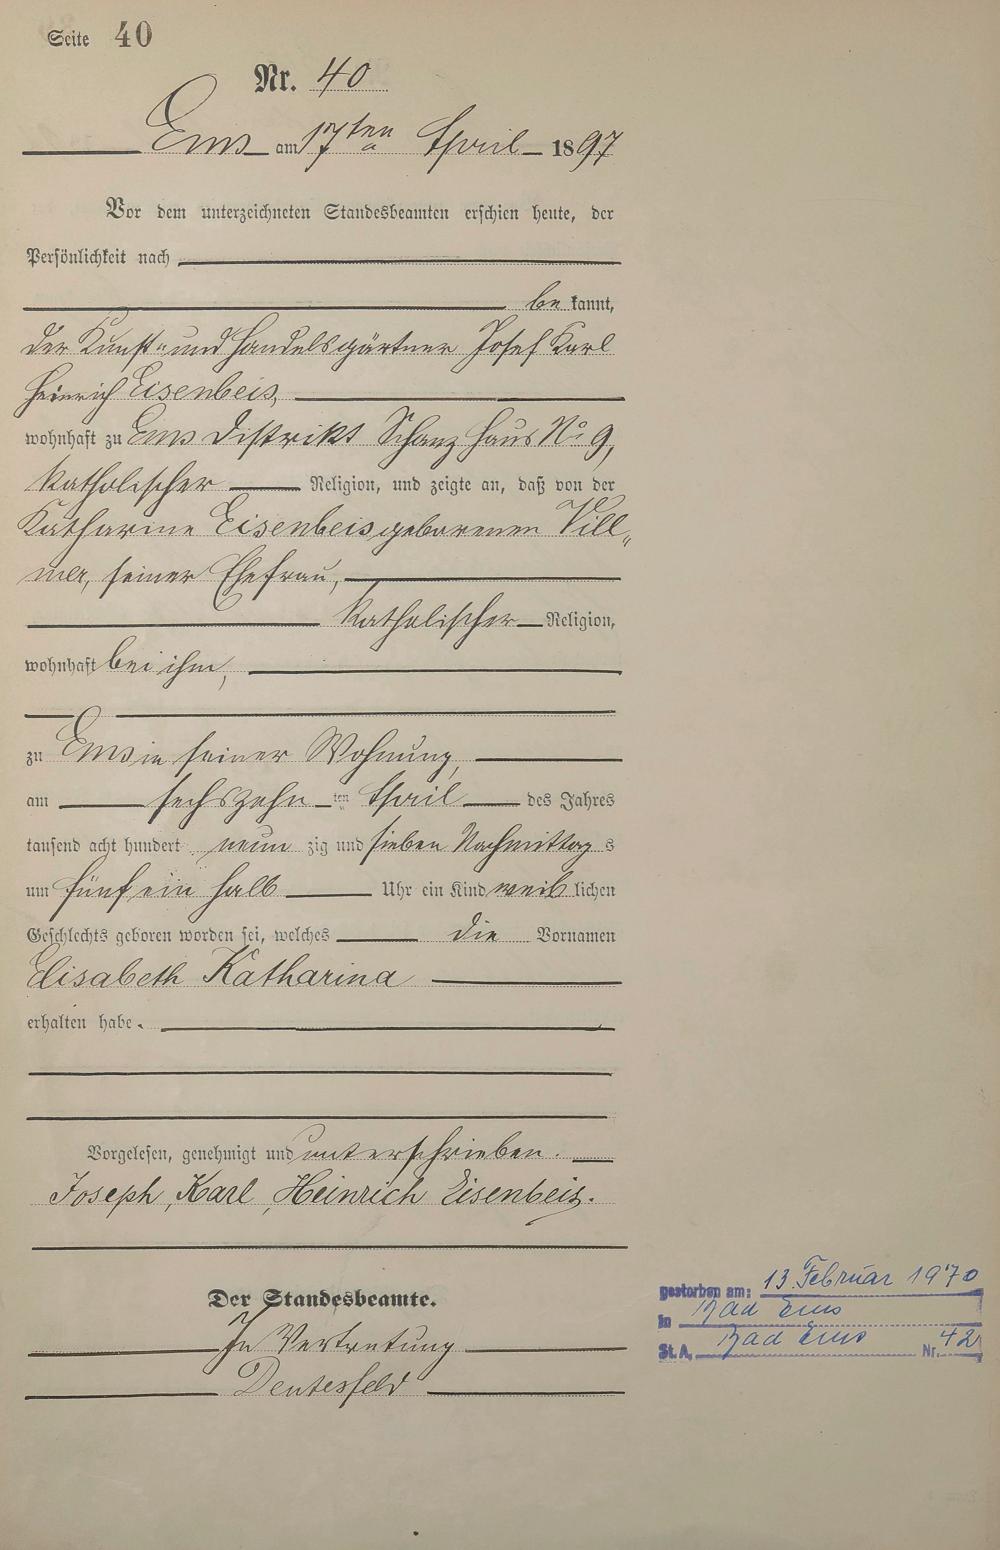 Seite 40
Nr. 40
Ems am 17ten April 1897
Vor dem unterzeichneten Standesbeamten erschien heute, der
Persönlichkeit nach
be kannt,
der Kunst- und Handelsgärtner Josef Karl
Heinrich Eisenbeis,
wohnhaft zu Ems Distrikt Schanz Haus No 9,
katholischer Religion, und zeigte an, daß von der
Katharine Eisenbeis geborenen Vill„
mer, seiner Ehefrau,
katholischer Religion,
wohnhaft bei ihm,
zu Ems in seiner Wohnung,
am sechszehn ten April des Jahres
tausend acht hundert neun zig und sieben Nachmittag s
um fünf ein halb Uhr ein Kind weib lichen
Geschlechts geboren worden sei, welches die Vornamen
Elisabeth Katharina
erhalten habe.
Vorgelesen, genehmigt und unterschrieben.
Joseph, Karl, Heinrich Eisenbeis.
Der Standesbeamte.
In Vertretung
gestorben am: 13. Februar 1970
in Bad Ems
St. A. Bad Ems Nr. 42